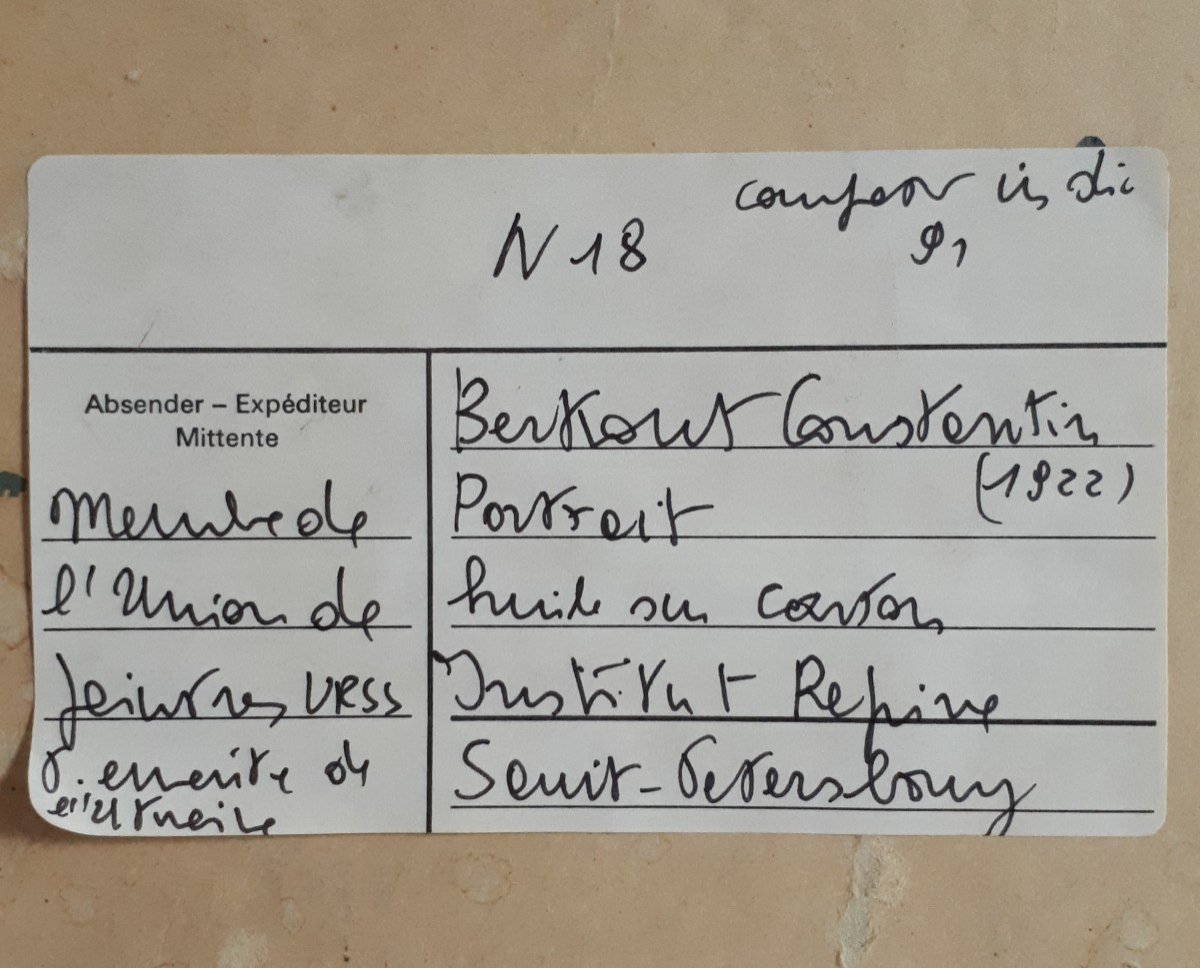 N 18
91
Absender – Expéditeur
Mittente
Membre de
l'Union de
peintres URSS
P. emerite de
l'Ukraine
Berkout Constantin
(1922)
Portrait
huile sur carton
Institut Repine
Saint-Petersbourg